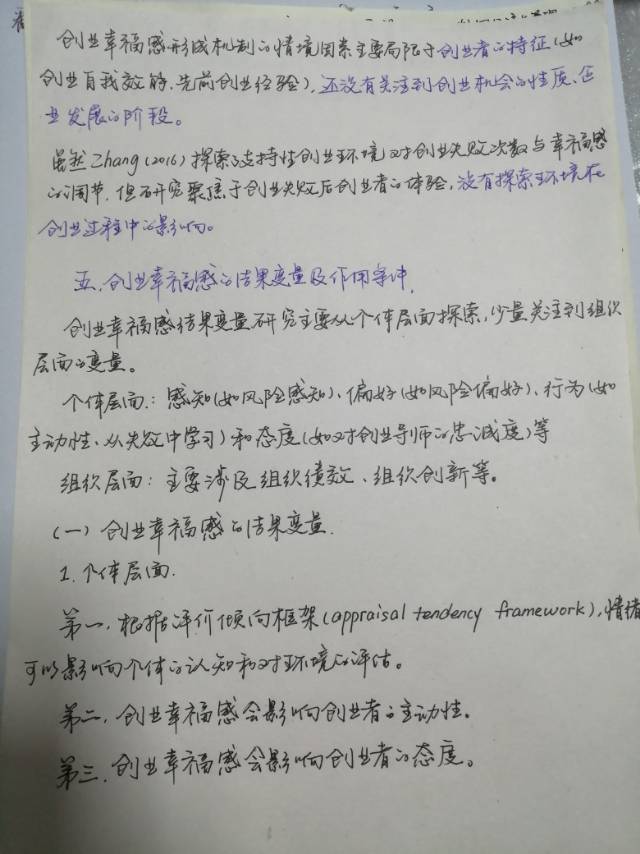 创业幸福感形成机制的情境因素主要局限于创业者的特征(如
创业自我效能、先前创业经验),还没有关注到创业机会的性质、企
业发展的阶段。
虽然Zhang(2016)探索了支持性创业环境对创业失败次数与幸福感
的调节,但研究聚焦于创业失败后创业者的体验,没有探索环境在
创业过程中的影响。
五、创业幸福感的结果变量及作用条件
创业幸福感结果变量研究主要从个体层面探索,少量关注到组织
层面的变量。
个体层面:感知(如风险感知)、偏好(如风险偏好)、行为(如
主动性、从失败中学习)和态度(如对创业导师的忠诚度)等
组织层面:主要涉及组织绩效、组织创新等。
(一)创业幸福感的结果变量
1.个体层面.
第一,根据评价倾向框架(appraisal tendency framework),情绪
可以影响个体的认知和对环境的评估。
第二,创业幸福感会影响创业者的主动性。
第三,创业幸福感会影响创业者的态度。